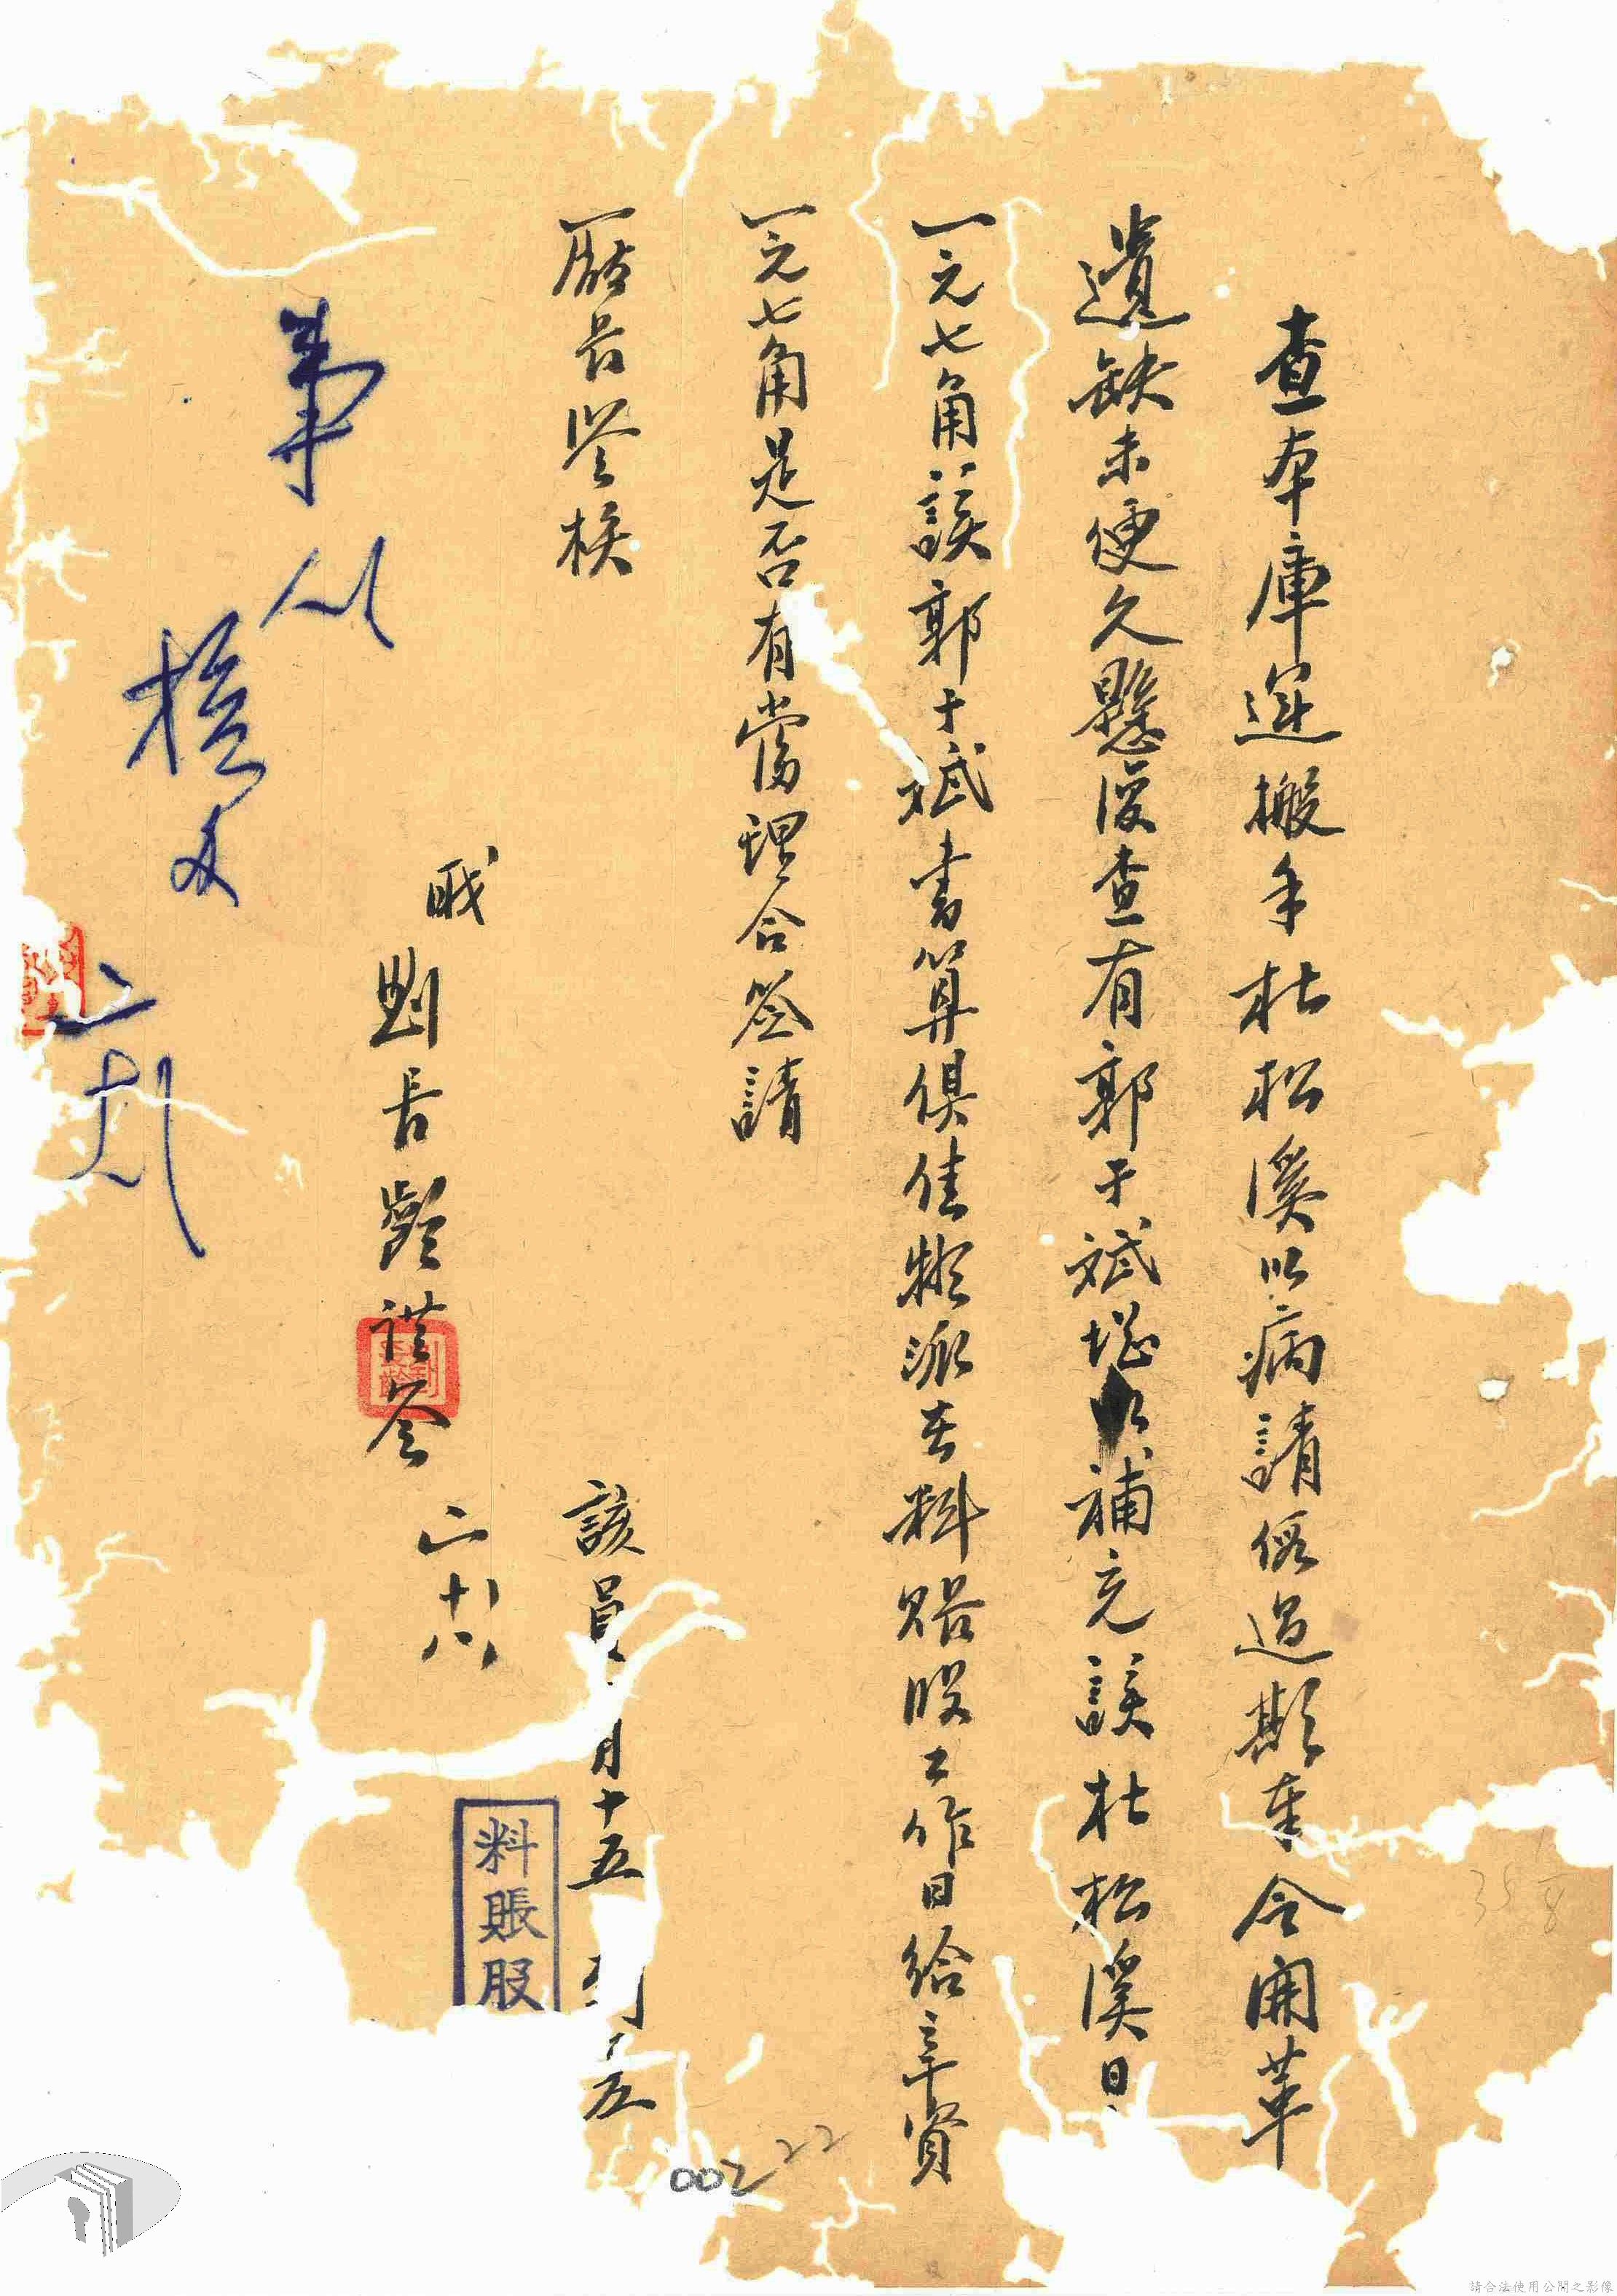 查本庫運搬手杜松溪以病請假過期奉令開革
遺缺未便久懸復查有郭于斌堪以補充該杜松溪日
一元七角該郭于斌書算俱佳擬派在料賬股工作日給辛資
一元七角是否有當理合簽請
廠長鑒核
職劉長齡謹簽
二十八
該員 月十五 到 五
料賬股
核
002
22
35
請合法使用公開之影像